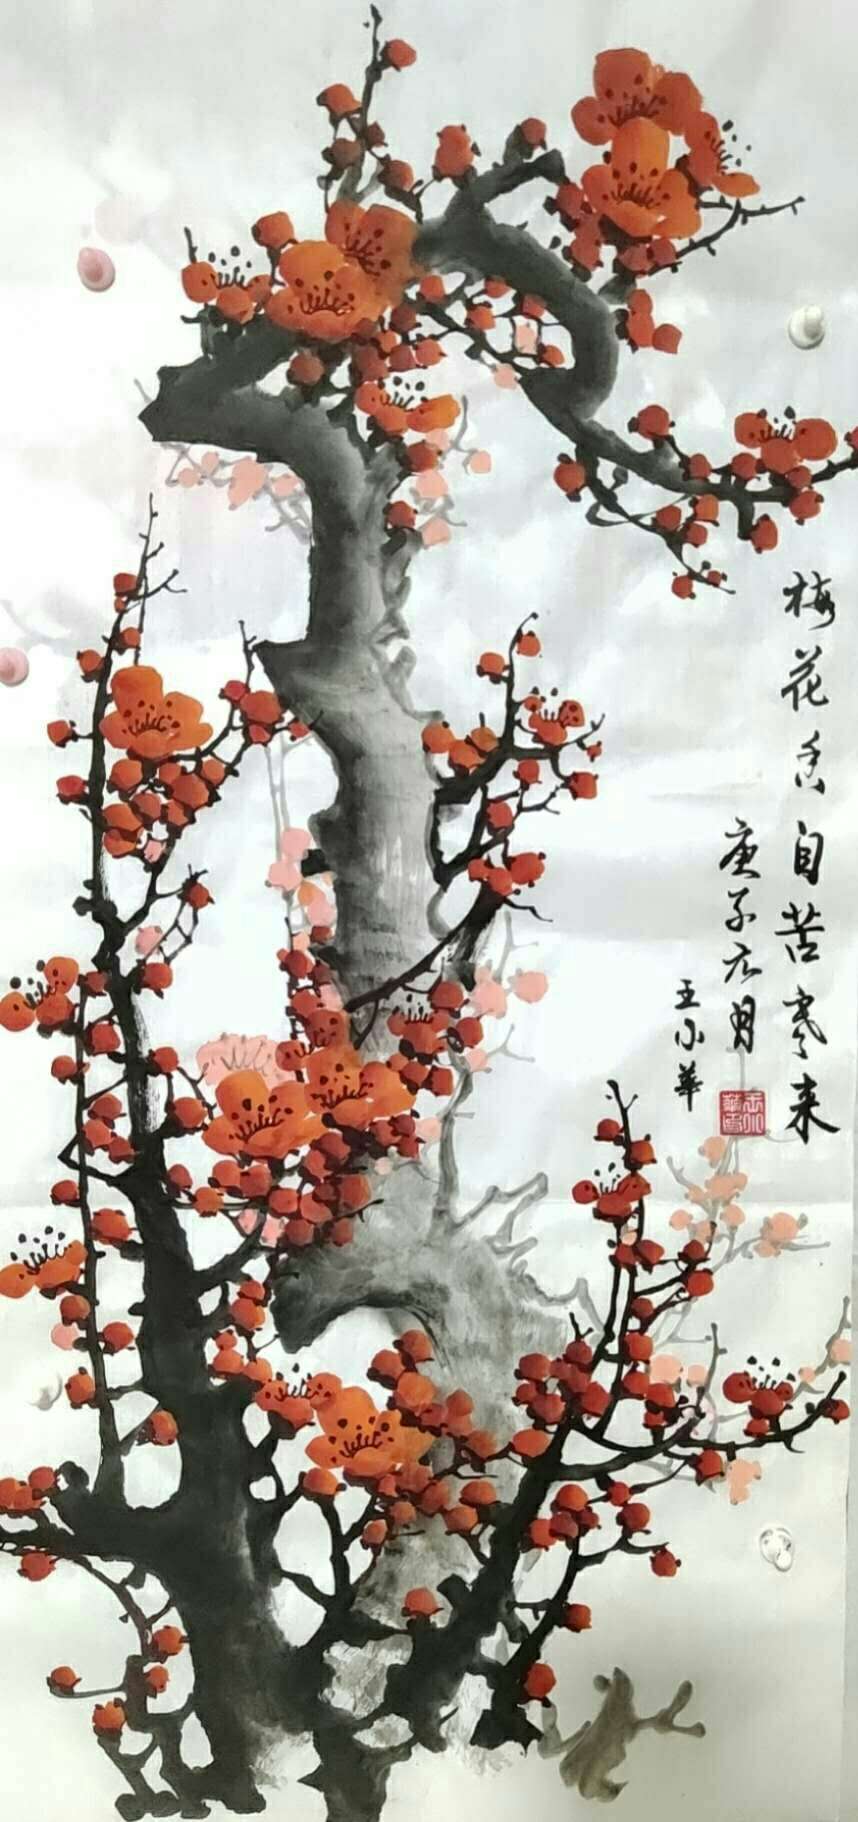 梅花香自苦寒来
庚子六月
王小華